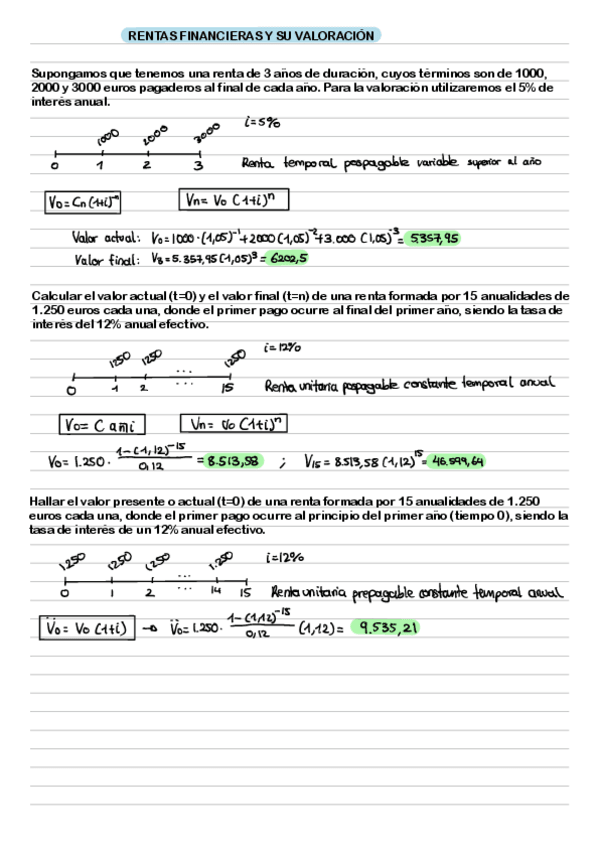 RENTAS FINANCIERAS Y SU VALORACIÓN
Supongamos que tenemos una renta de 3 años de duración, cuyos términos son de 1000,
2000 y 3000 euros pagaderos al final de cada año. Para la valoración utilizaremos el 5% de
interés anual.
1000 2000 3000 i=5%
0 1 2 3 Renta temporal pospagable variable superior al año
V₀=Cn(1+i)⁻ⁿ Vn= V₀ (1+i)ⁿ
Valor actual: V₀=1000·(1,05)⁻¹+2000(1,05)⁻²+3.000(1,05)⁻³= 5.357,95
Valor final: V₃=5.357,95(1,05)³= 6202,5
Calcular el valor actual (t=0) y el valor final (t=n) de una renta formada por 15 anualidades de
1.250 euros cada una, donde el primer pago ocurre al final del primer año, siendo la tasa de
interés del 12% anual efectivo.
1250 1250 ... 1250 i=12%
0 1 2 ... 15 Renta unitaria pospagable constante temporal anual
V₀= C a n i Vn= V₀ (1+i)ⁿ
V₀= 1.250 · 1-(1,12)⁻¹⁵ / 0,12 = 8.513,58 ; V₁₅= 8.513,58 (1,12)¹⁵= 46.599,64
Hallar el valor presente o actual (t=0) de una renta formada por 15 anualidades de 1.250
euros cada una, donde el primer pago ocurre al principio del primer año (tiempo 0), siendo la
tasa de interés de un 12% anual efectivo.
1.250 1250 1250 ... 1.250 i=12%
0 1 2 ... 14 15 Renta unitaria prepagable constante temporal anual
V̈₀= V₀ (1+i) → V̈₀= 1.250 · 1-(1,12)⁻¹⁵ / 0,12 (1,12)= 9.535,21